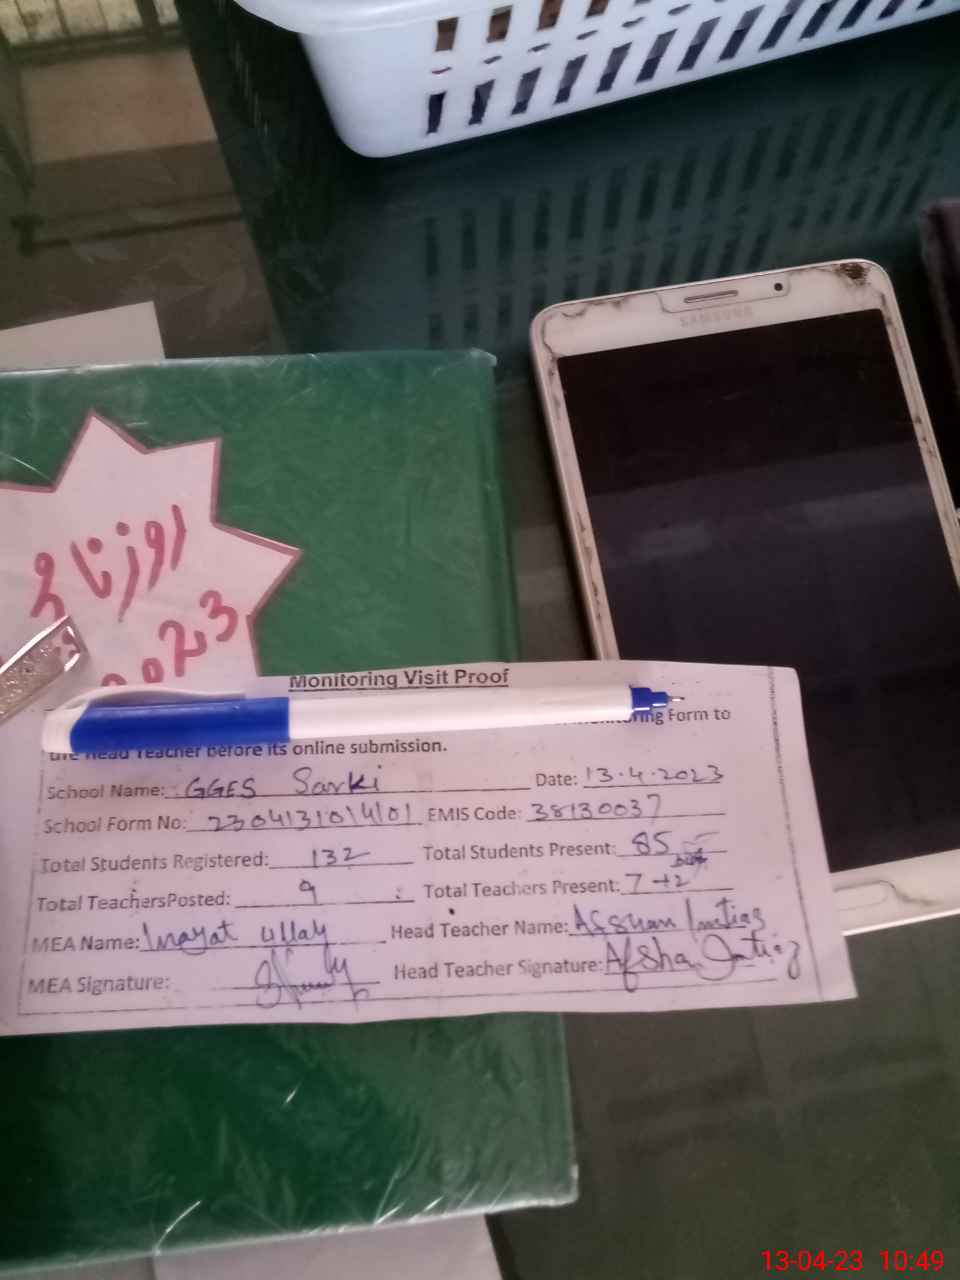 SAMSUNG
روزنامچہ
2023
Monitoring Visit Proof
Monitoring Form to
the Head Teacher before its online submission.
School Name: GGES Sarki Date: 13.4.2023
School Form No: 230413101401 EMIS Code: 38130037
Total Students Registered: 132 Total Students Present: 85
Total TeachersPosted: 9 Total Teachers Present: 7+2
MEA Name: Inayat ullah Head Teacher Name: Afshan Imtiaz
MEA Signature: Head Teacher Signature: Afshan Imtiaz
13-04-23 10:49